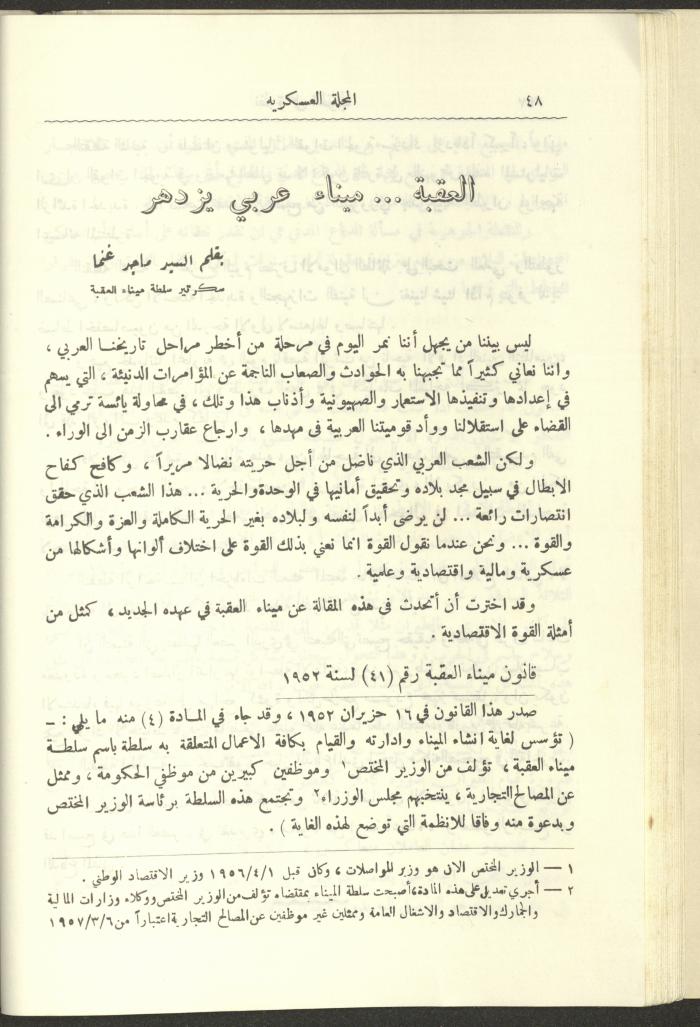 ٤٨
المجلة العسكرية
العقبة ... ميناء عربي يزدهر
بقلم السيد ماجد غنما
سكرتير سلطة ميناء العقبة
ليس بيننا من يجهل أننا نمر اليوم في مرحلة من أخطر مراحل تاريخنا العربي ،
واننا نعاني كثيراً مما تجبهنا به الحوادث والصعاب الناجمة عن المؤامرات الدنيئة ، التي يسهم
في إعدادها وتنفيذها الاستعمار والصهيونية وأذناب هذا وتلك ، في محاولة يائسة ترمي الى
القضاء على استقلالنا ووأد قوميتنا العربية في مهدها ، وارجاع عقارب الزمن الى الوراء .
ولكن الشعب العربي الذي ناضل من أجل حريته نضالا مريراً ، وكافح كفاح
الابطال في سبيل مجد بلاده وتحقيق أمانيها في الوحدة والحرية ... هذا الشعب الذي حقق
انتصارات رائعة ... لن يرضى أبداً لنفسه ولبلاده بغير الحرية الكاملة والعزة والكرامة
والقوة ... ونحن عندما نقول القوة انما نعني بذلك القوة على اختلاف ألوانها وأشكالها من
عسكرية ومالية واقتصادية وعلمية .
وقد اخترت أن أتحدث في هذه المقالة عن ميناء العقبة في عهده الجديد ، كمثل من
أمثلة القوة الاقتصادية .
قانون ميناء العقبة رقم (٤١) لسنة ١٩٥٢
صدر هذا القانون في ١٦ حزيران ١٩٥٢ ، وقد جاء في المادة (٤) منه ما يلي : ــ
( تؤسس لغاية انشاء الميناء وادارته والقيام بكافة الاعمال المتعلقة به سلطة باسم سلطة
ميناء العقبة ، تؤلف من الوزير المختص ١ وموظفين كبيرين من موظفي الحكومة ، وممثل
عن المصالح التجارية ، ينتخبهم مجلس الوزراء ٢ وتجتمع هذه السلطة برئاسة الوزير المختص
وبدعوة منه وفاقا للانظمة التي توضع لهذه الغاية ) .
١ — الوزير المختص الان هو وزير المواصلات ، وكان قبل ١٩٥٦/٤/١ وزير الاقتصاد الوطني .
٢ — أجري تعديل على هذه المادة، أصبحت سلطة الميناء بمقتضاه تؤلف من الوزير المختص ووكلاء وزارات المالية
والجمارك والاقتصاد والاشغال العامة وممثلين غير موظفين عن المصالح التجارية اعتباراً من ١٩٥٧/٣/٦